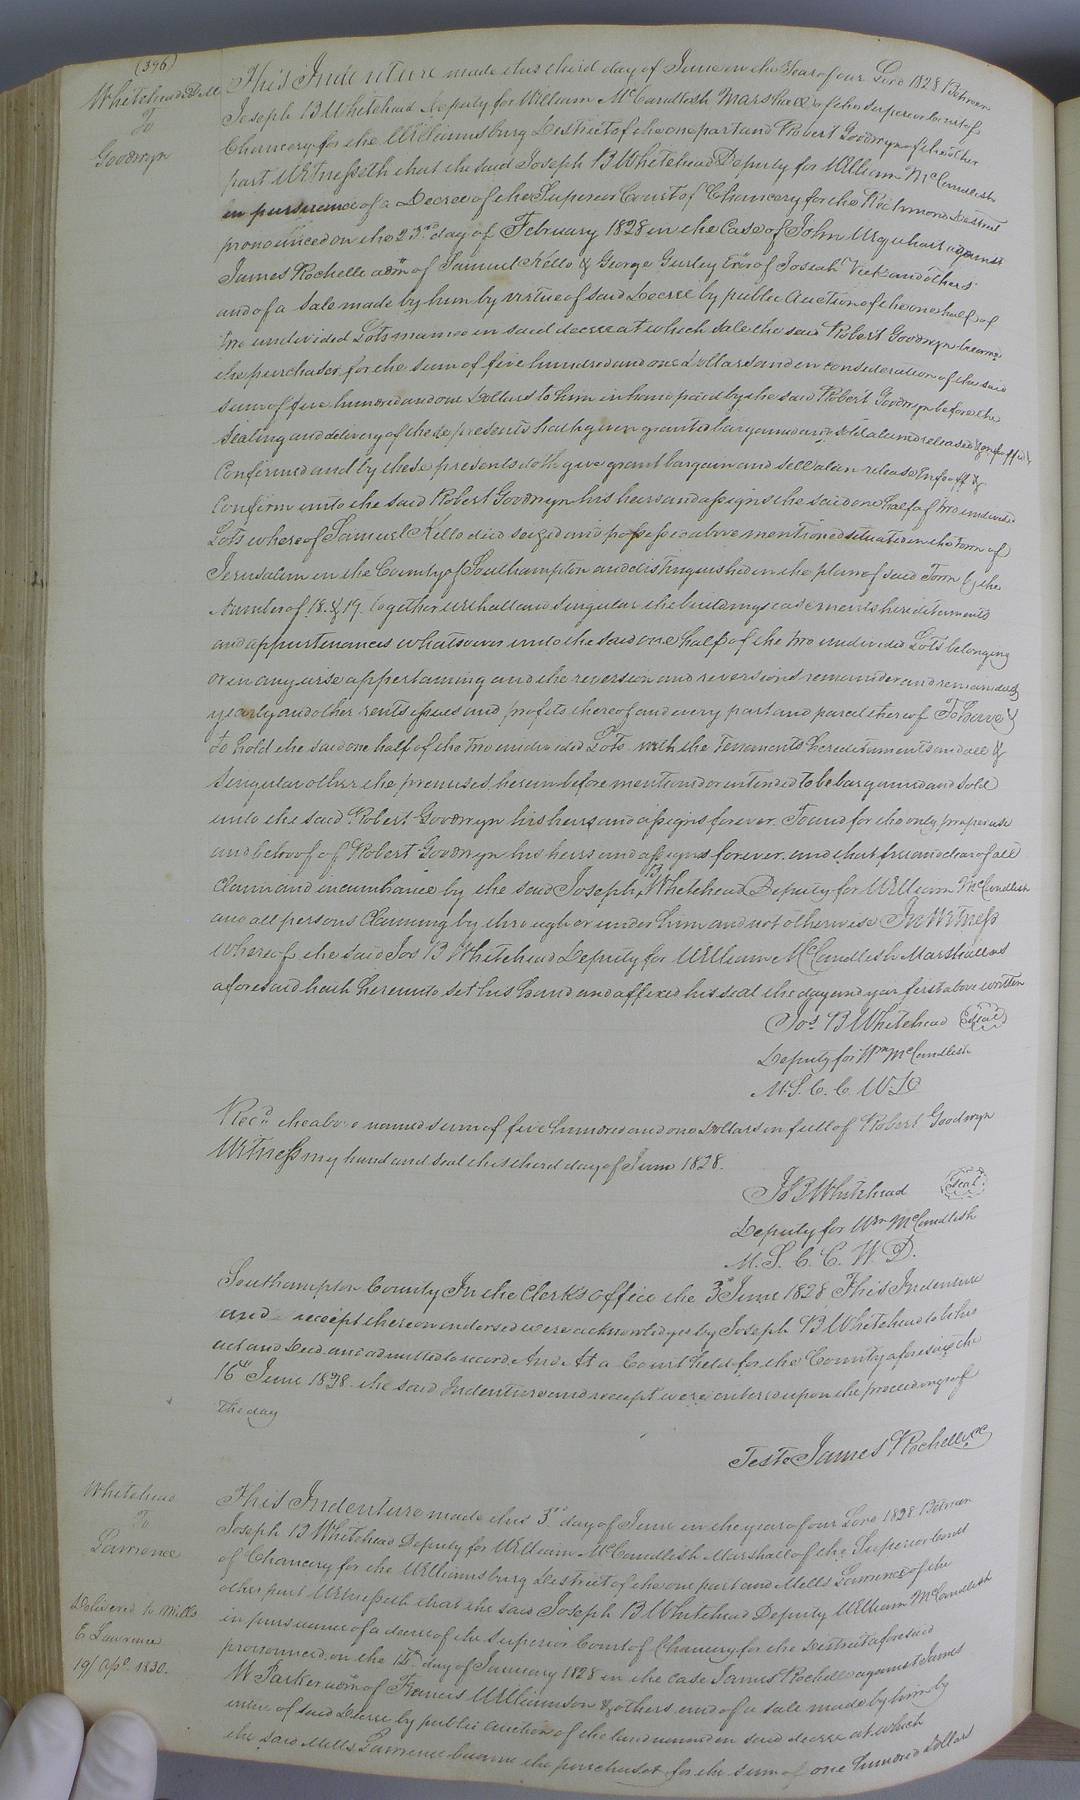 (376)
Whitehead D.M.
To
Goodwyn
This Indenture made this third day of June in the Year of our Lord 1828 Between
Joseph B Whitehead Deputy for William McCandlish Marshall of the Superior Court of
Chancery for the Williamsburg District of the one part and Robert Goodwyn of the other
part Witnesseth that the said Joseph B Whitehead Deputy for William McCandlish
in pursuance of a Decree of the Superior Court of Chancery for the Richmond District
pronounced on the 23rd day of February 1828 in the Case of John Urquhart against
James Rochelle admr of Samuel Kello & George Gurley Exr of Josiah Vick and others
and of a Sale made by him by virtue of said Decree by public Auction of the one half of
two undivided Lots named in said decree at which sale the said Robert Goodwyn became
the purchaser for the sum of five hundred and one Dollars and in consideration of the said
sum of five hundred and one Dollars to him in hand paid by the said Robert Goodwyn before the
Sealing and delivery of these presents hath given granted bargained and sold aliened released Enfeoffed &
Confirmed and by these presents doth give grant bargain and sell alien release Enfeoff &
Confirm unto the said Robert Goodwyn his heirs and assigns the said one half of two undivided
Lots whereof Samuel Kello died seized and possessed above mentioned situated in the Town of
Jerusalem in the County of Southampton and distinguished in the plan of said Town by the
Number of 18. & 19. together with all and singular the buildings easements hereditaments
and appurtenances whatsoever unto the said one half of the two undivided Lots belonging
or in any wise appertaining and the reversion and reversions remainder and remainders
yearly and other rents issues and profits thereof and every part and parcel thereof To have &
to hold the said one half of the two undivided Lots with the Tenements hereditaments and all &
Singular other the premises herein before mentioned or intended to be bargained and sold
unto the said Robert Goodwyn his heirs and assigns forever. To and for the only proper use
and behoof of Robert Goodwyn his heirs and assigns forever. and that free and clear of all
Claim and incumbrance by the said Joseph B. Whitehead Deputy for William McCandlish
and all persons Claiming by through or under him and not otherwise In Witness
whereof the said Jos B Whitehead Deputy for William McCandlish Marshall as
aforesaid hath hereunto set his hand and affixed his seal the day and year first above written
Jos B Whitehead Seal
Deputy for Wm McCandlish
M. S. C. C. W. D
Recd. the above named sum of five hundred and one Dollars in full of Robert Goodwyn
Witness my hand and seal this third day of June 1828.
Jo B Whitehead Seal
Deputy for Wm McCandlish
M. S. C. C. W. D.
Southampton County In the Clerks Office the 3d June 1828 This Indenture
and receipt thereon endorsed were acknowledged by Joseph B Whitehead to be his
act and Deed and admitted to record. And At a Court held for the County aforesaid the
16th June 1828 the said Indenture and receipt were entered upon the proceedings of
the day
Teste James Rochelle CC
Whitehead
To
Lawrence
Delivered to Mills
E Lawrence
19th Apl. 1830.
This Indenture made this 3rd day of June in the year of our Lord 1828 Between
Joseph B Whitehead Deputy for William McCandlish Marshall of the Superior Court
of Chancery for the Williamsburg District of the one part and Mills Lawrence of the
other part Witnesseth that the said Joseph B Whitehead Deputy William McCandlish
in pursuance of a decree of the Superior Court of Chancery for the District aforesaid
pronounced on the day of January 1828 in the case James Rochelle against James
W Parker admr of Francis Williamson & others and of a sale made by him by
virtue of said Decree by public auction of the land named in said decree at which
the said Mills Lawrence became the purchaser for the sum of one hundred Dollars